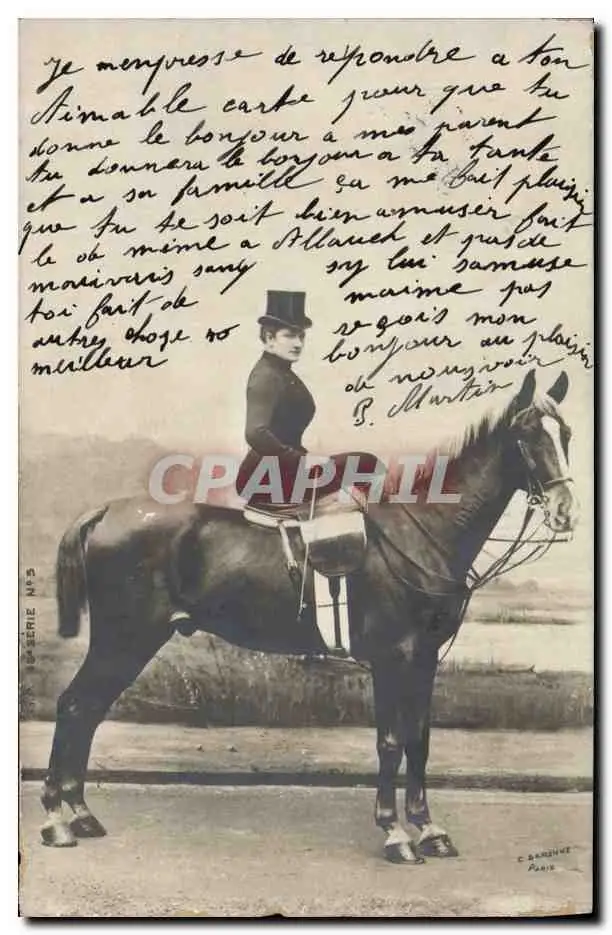 Je m'enpresse de repondre a ton
Aimable carte pour que tu
donne le bonjour a mes parent
tu donnera le bonjour a ta tante
et a sa famille ça me fait plaisir
que tu te soit bien amuser fait
le de même a Allauch et pas de
mauvais sang sy lui samuse
toi fait de maime pas
autres chose reçois mon
meilleur bonjour au plaisir
de nous voir
P. Martin
CPAPHIL
SERIE N° 5
PARIS